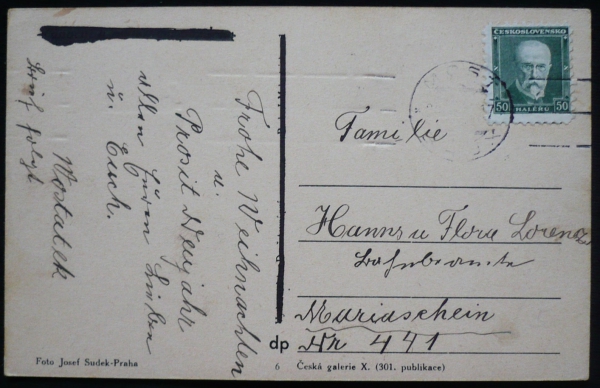 Frohe Weihnachten
u.
Prosit Neujahr
allen Euren Lieben
u. Euch.
Brief folgt
ČESKOSLOVENSKO
50 HALÉŘŮ 50
Familie
Hanns u Flora Lorenz
Bahnbeamte
Mariaschein
Nr 441
dp
Foto Josef Sudek-Praha
6 Česká galerie X. (301. publikace)